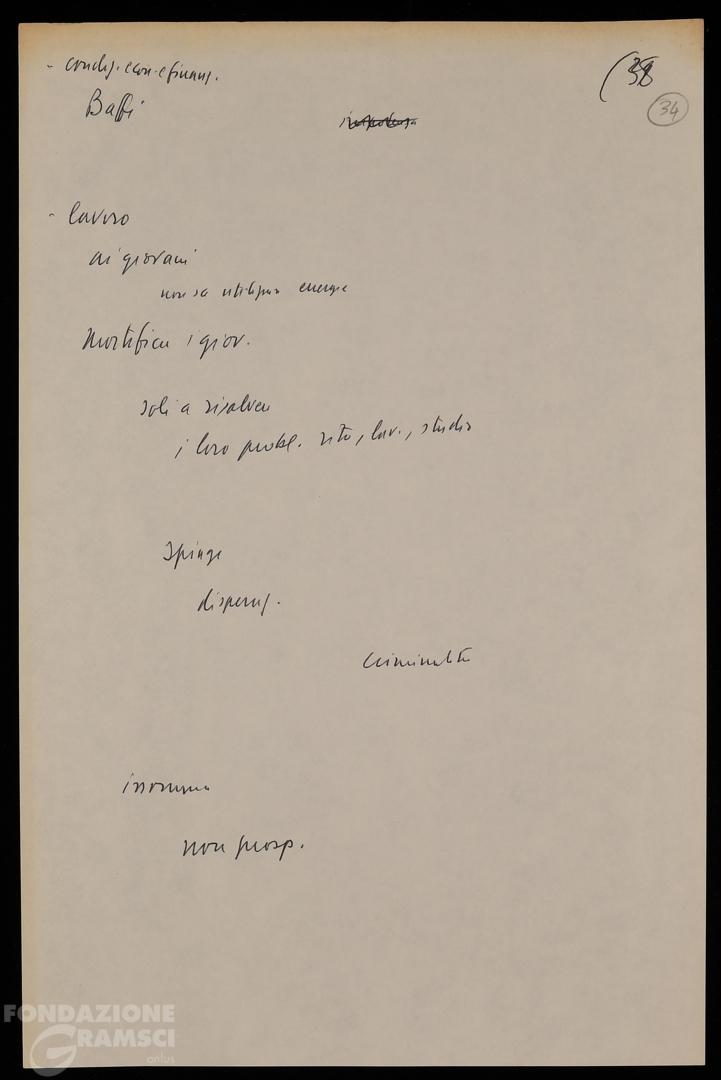 - condiz. econ. e finanz.
(38
Baffi
34
- lavoro
ai giovani
non sa utilizzare energie
Mortifica i giov.
soli a risolvere
i loro probl. vita, lav., studio
Spinge
disperaz.
criminalità
insomma
non prosp.
FONDAZIONE
GRAMSCI
onlus